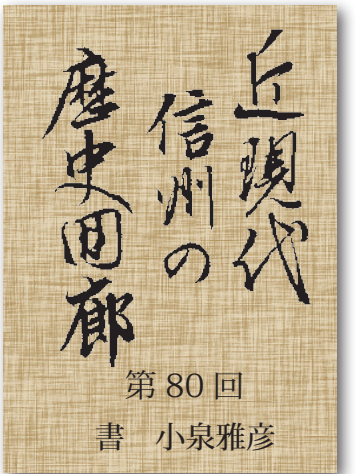 近現代
信州の
歴史回廊
第80回
書　小泉雅彦